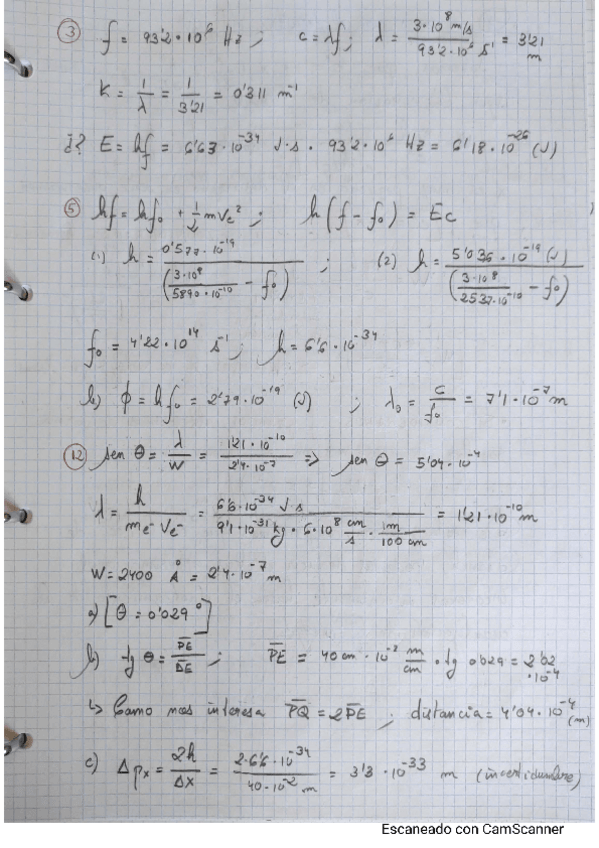 ③ f = 93'2 · 10⁶ Hz ; c = λf ; λ = (3·10⁸ m/s)/(93'2·10⁶ s⁻¹) = 3'21 m
K = 1/λ = 1/3'21 = 0'311 m⁻¹
¿? E = hf = 6'63·10⁻³⁴ J·s · 93'2·10⁶ Hz = 6'18·10⁻²⁶ (J)
⑤ hf = hf₀ + ½ mVe² ; h(f - f₀) = Ec
(1) h = (0'577·10⁻¹⁹)/((3·10⁸)/(5890·10⁻¹⁰) - f₀) ; (2) h = (5'036·10⁻¹⁹ (J))/((3·10⁸)/(2537·10⁻¹⁰) - f₀)
f₀ = 4'22·10¹⁴ s⁻¹ ; h = 6'6·10⁻³⁴
b) ϕ = hf₀ = 2'79·10⁻¹⁹ (J) ; λ₀ = c/f₀ = 7'1·10⁻⁷ m
⑫ sen θ = λ/W = (1'21·10⁻¹⁰)/(2'4·10⁻⁷) => sen θ = 5'04·10⁻⁴
λ = h/(me⁻ Ve⁻) = (6'6·10⁻³⁴ J·s)/(9'1·10⁻³¹ kg · 6·10⁸ cm/s · 1m/100 cm) = 1'21·10⁻¹⁰ m
W = 2400 Å = 2'4·10⁻⁷ m
a) [θ = 0'029°]
b) tg θ = PE/DE ; PE = 40 cm · 10⁻² m/cm · tg 0'029 = 2'02 · 10⁻⁴
↳ Como nos interesa PQ = 2PE ; distancia = 4'04·10⁻⁴ (m)
c) Δpx = 2h/Δx = (2·6'6·10⁻³⁴)/(40·10⁻² m) = 3'3·10⁻³³ m (incertidumbre)
Escaneado con CamScanner